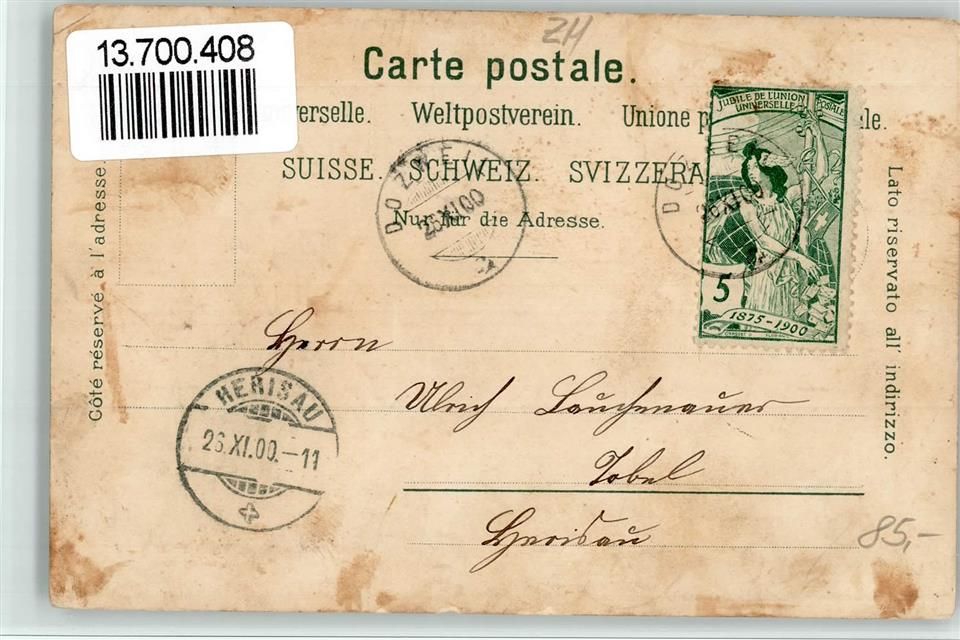 13.700.408
ZH
Carte postale.
verselle. Weltpostverein. Unione p le.
SUISSE. SCHWEIZ. SVIZZERA
Nur für die Adresse.
Côté réservé à l'adresse.
Lato riservato all' indirizzo.
JUBILÉ DE L'UNION POSTALE
UNIVERSELLE
5
1875-1900
DOZWEIL
26.XI.00
26.XI.00
Herrn
Ulrich Lauchenauer
Tobel
Herisau
HERISAU
26.XI.00.-11
85,-